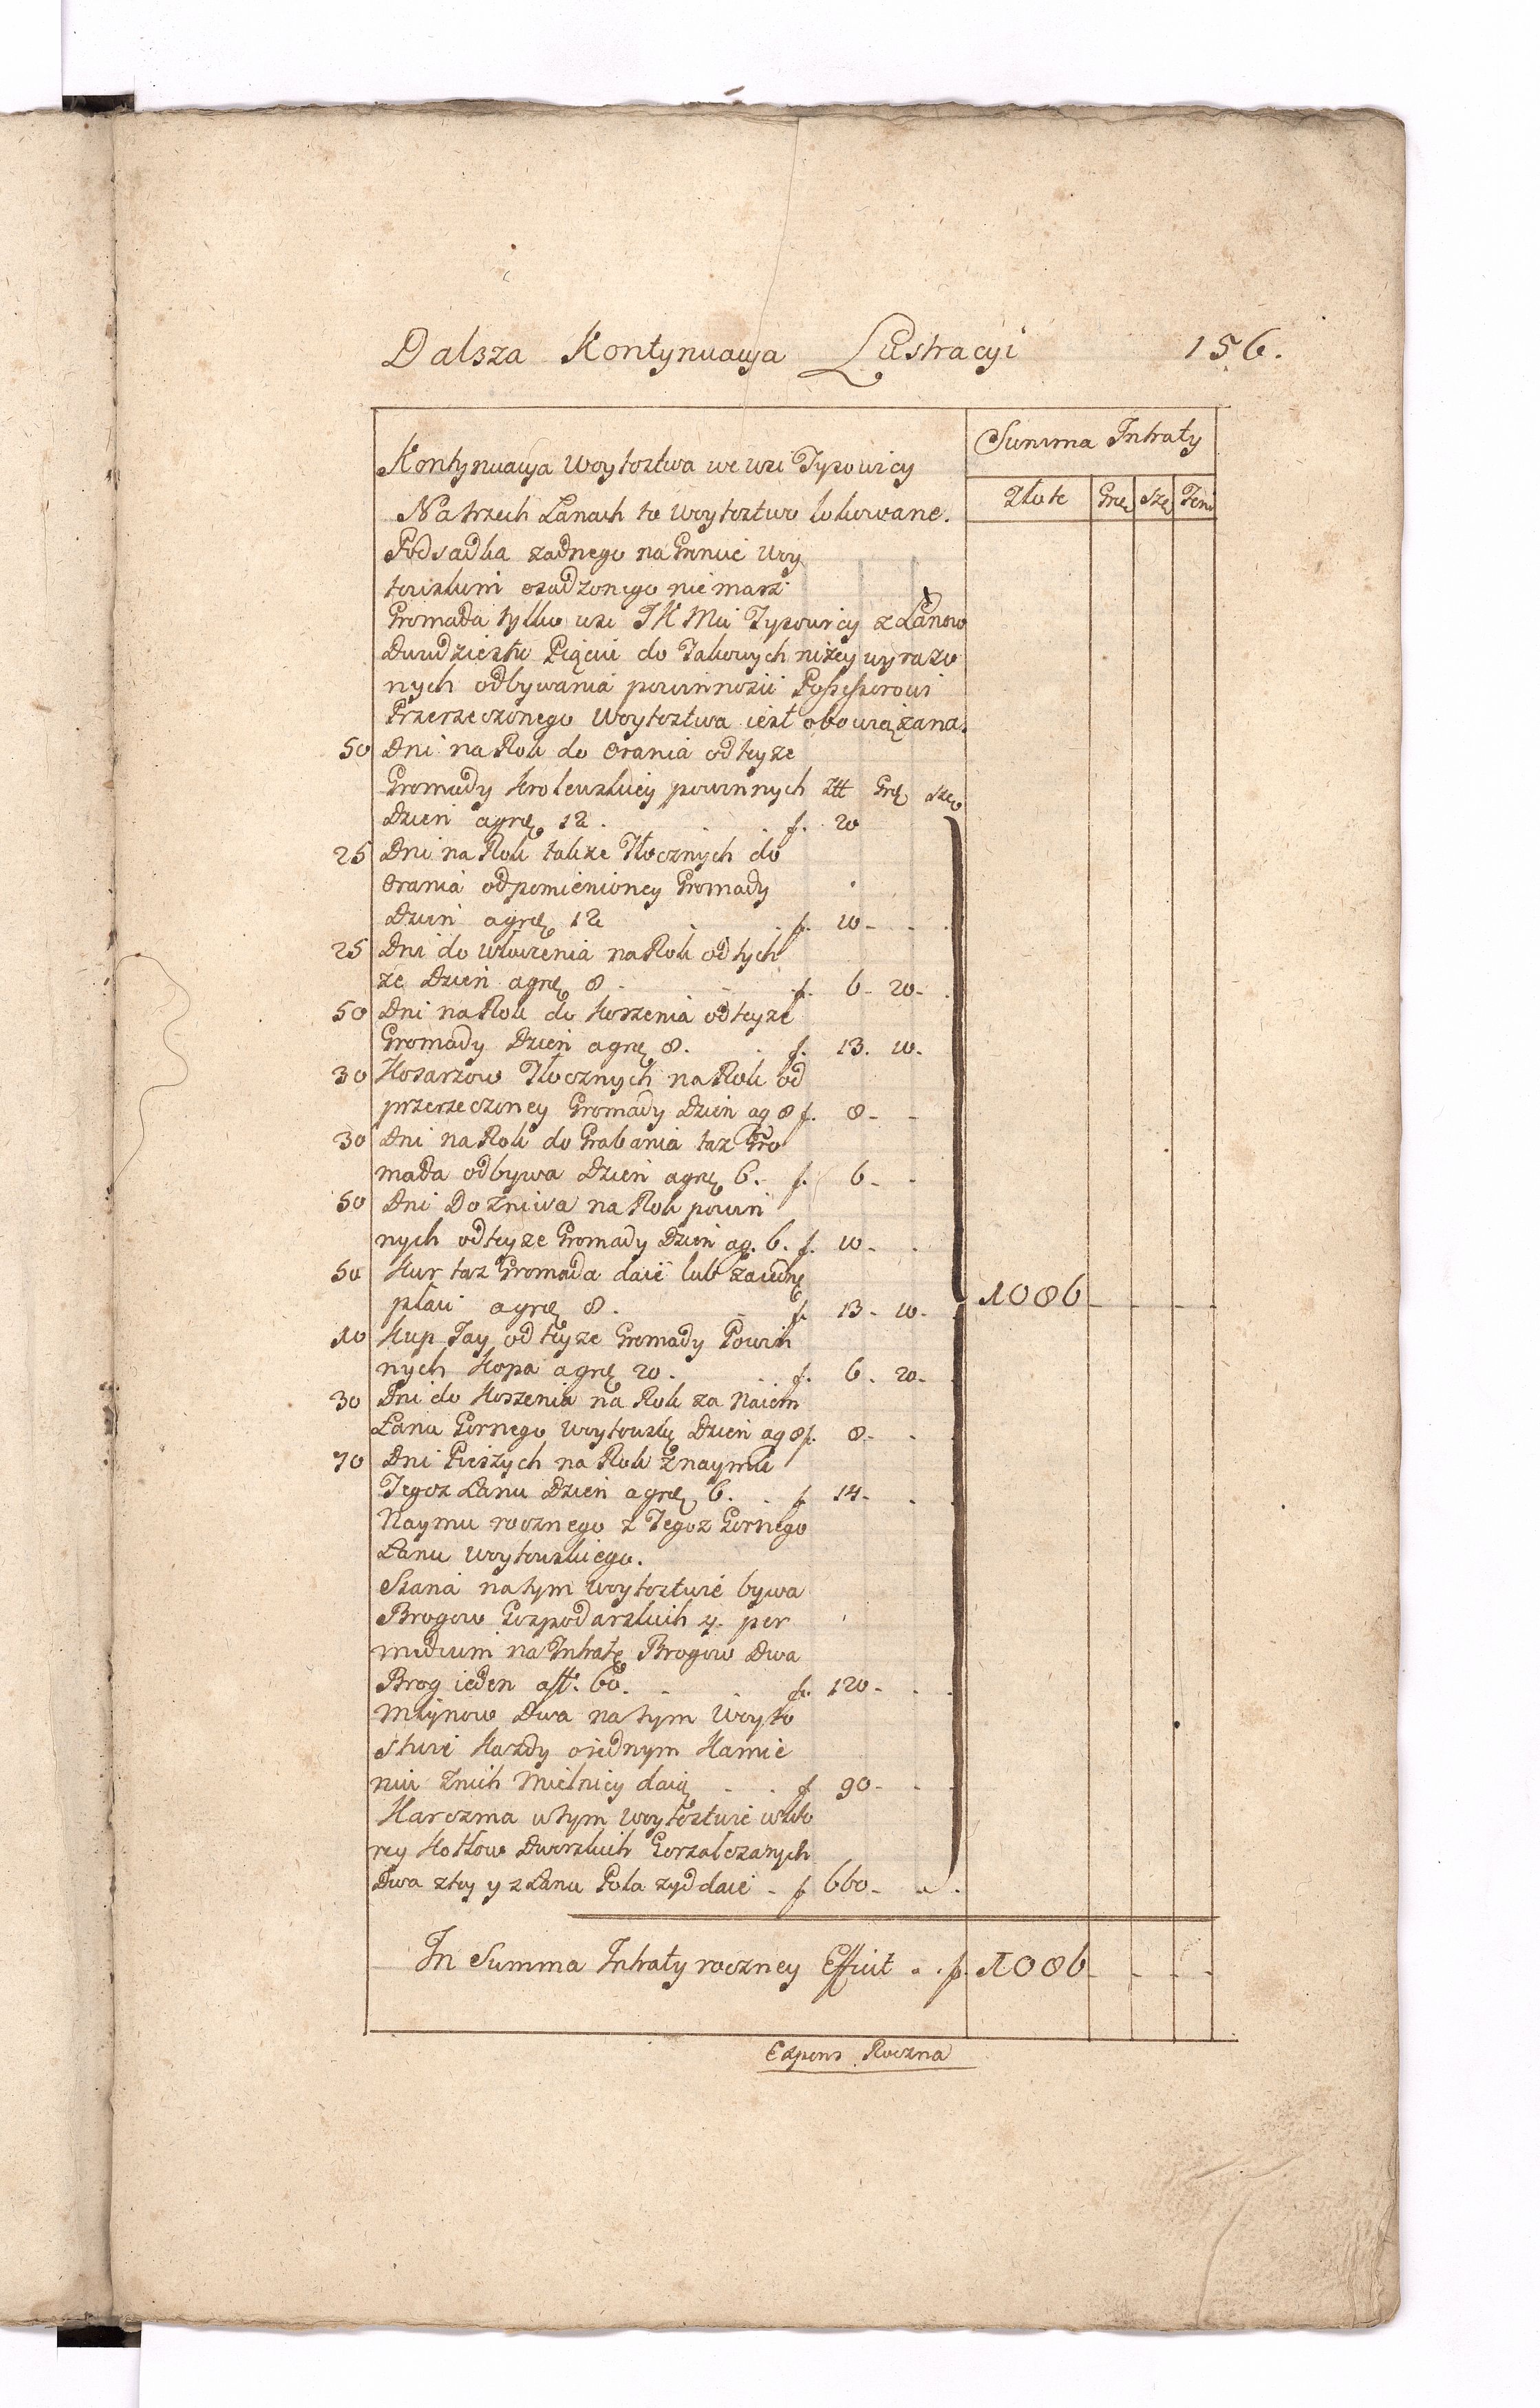 Dalsza Kontynuacya Lustracyi 156.
Summa Intraty
Kontynuacya Woytoztwa we wsi Tysowicy
Złote Grę Szę Feni
Na trzech Łanach to Woytoztwo lokowane.
Podsadka zadnego na Grnuie Woy
towzkim osadzonego nie marz
Gromada tylko wsi JK Mci Tysowicy z Łanow
Dwudziestu Pięciu do Takowych niżey wyrazo
nych odbywania powinnosci Possessorowi
Przerzeczonego Woytoztwa iest obowiązana.
50 Dni na Rok do Orania od teyze
Gromady Krolewskiey powinnych Złt Grę Szę
Dzien agrę 12 . . . f. 20
25 Dni na Rok takze Tłocznych do
Orania od pomienioney Gromady
Dzien agrę 12 . . f. 10 - - .
25 Dni do Włoczenia na Rok od tych
ze Dzien agrę 8 . - f. 6 - 20 - .
50 Dni na Rok do Koszenia od teyze
Gromady Dzien agrę 8 . . f. 13 . 10 .
30 Kosarzow Tłocznych na Rok od
przerzeczoney Gromady Dzien ag 8 f. 8 - -
30 Dni na Rok do Grabania taz Gro
mada odbywa Dzien agrę 6 . f. 6 - -
50 Dni Do Zniwa na Rok powin
nych od teyze Gromady Dzien ag. 6 . f. 10 - .
50 Kur taz Gromada daie lub za iednę
płaci agrę 8 . - f. 13 - 10 - . 1086 - - - -
10 Kup Jay od teyze Gromady Powin
nych Kopa agrę 20 . . . f. 6 . 20 - .
30 Dni do Koszenia na Rok za Naiem
Łanu Gornego Woytowzkę Dzien ag 8 f. 8 - - .
70 Dni Pieszych na Rok Znaymu
Tegoz Łanu Dzien agrę 6 . . f. 14 - . .
Naymu rocznego z Tegoz Gornego
Łanu Woytowzkiego.
Siana na tym Woytoztwie bywa
Brogow Gozpodarzkich 4. per
medium na Intratę Brogow Dwa
Brog ieden aft. 60 . - - f. 120 - . .
Młynow Dwa na tym Woyto
stwie Kazdy o iednym Kamie
niu Znich Mielnicy daią - . f 90 - - -
Karczma w tym Woytoztwie w kto
rey Kotłow Dworzkich Gorzalczanych
Dwa ztey y z Łanu Pola zyd daie - f 660 - - .
In Summa Intraty roczney Efficit . . f. 1086 - - - -
Expens Roczna